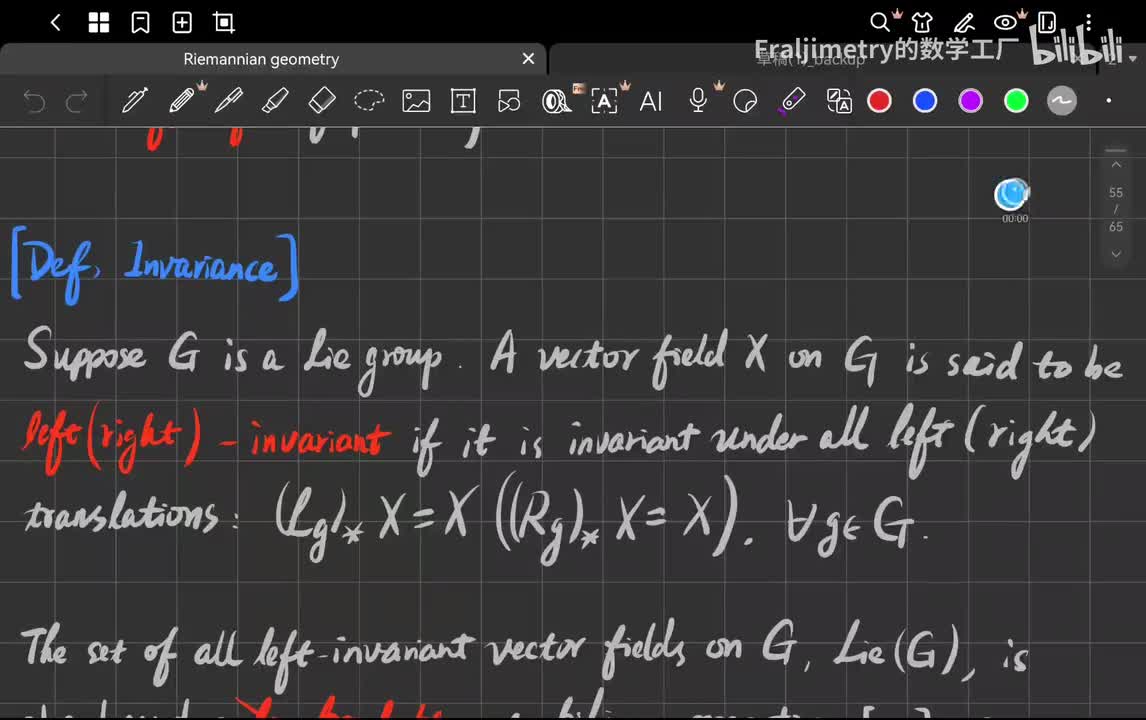 Fraljimetry的数学工厂 bilibili
Riemannian geometry
草稿(1)_backup
T A AI A
00:00
55
/
65
[Def, Invariance]
Suppose G is a Lie group. A vector field X on G is said to be
left(right)-invariant if it is invariant under all left(right)
translations: (Lg)* X = X ((Rg)* X = X). ∀g∈G.
The set of all left-invariant vector fields on G, Lie(G), is